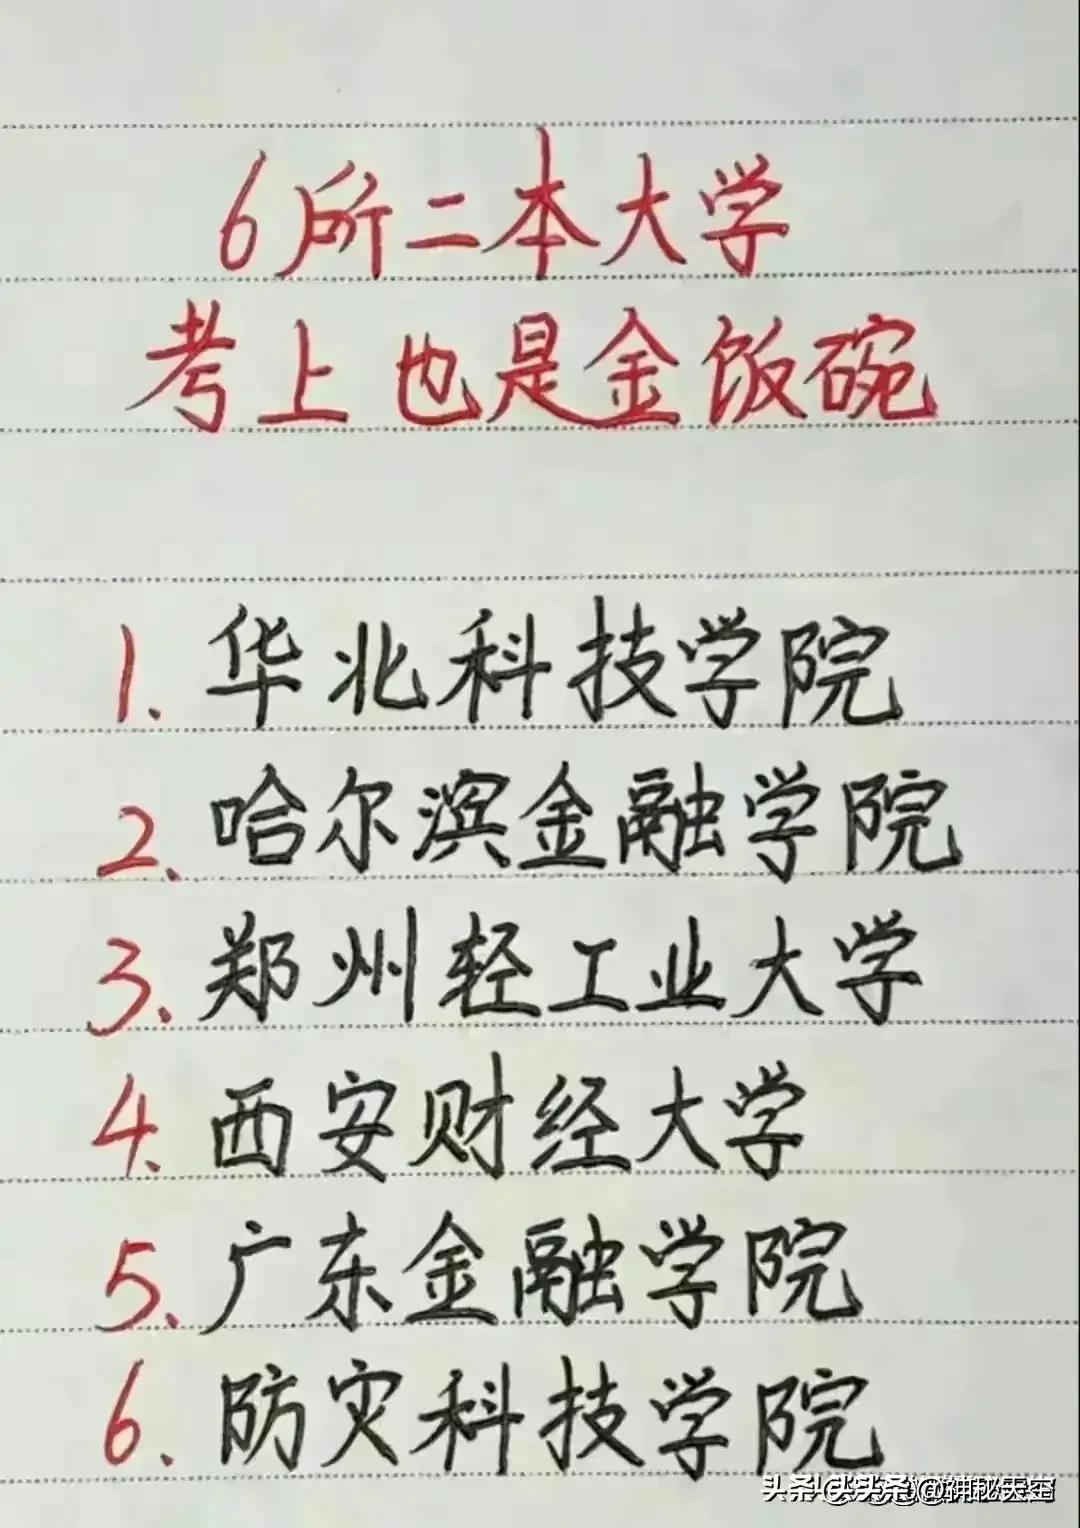 6所二本大学
考上也是金饭碗
1.华北科技学院
2.哈尔滨金融学院
3.郑州轻工业大学
4.西安财经大学
5.广东金融学院
6.防灾科技学院
头条 @神秘天空